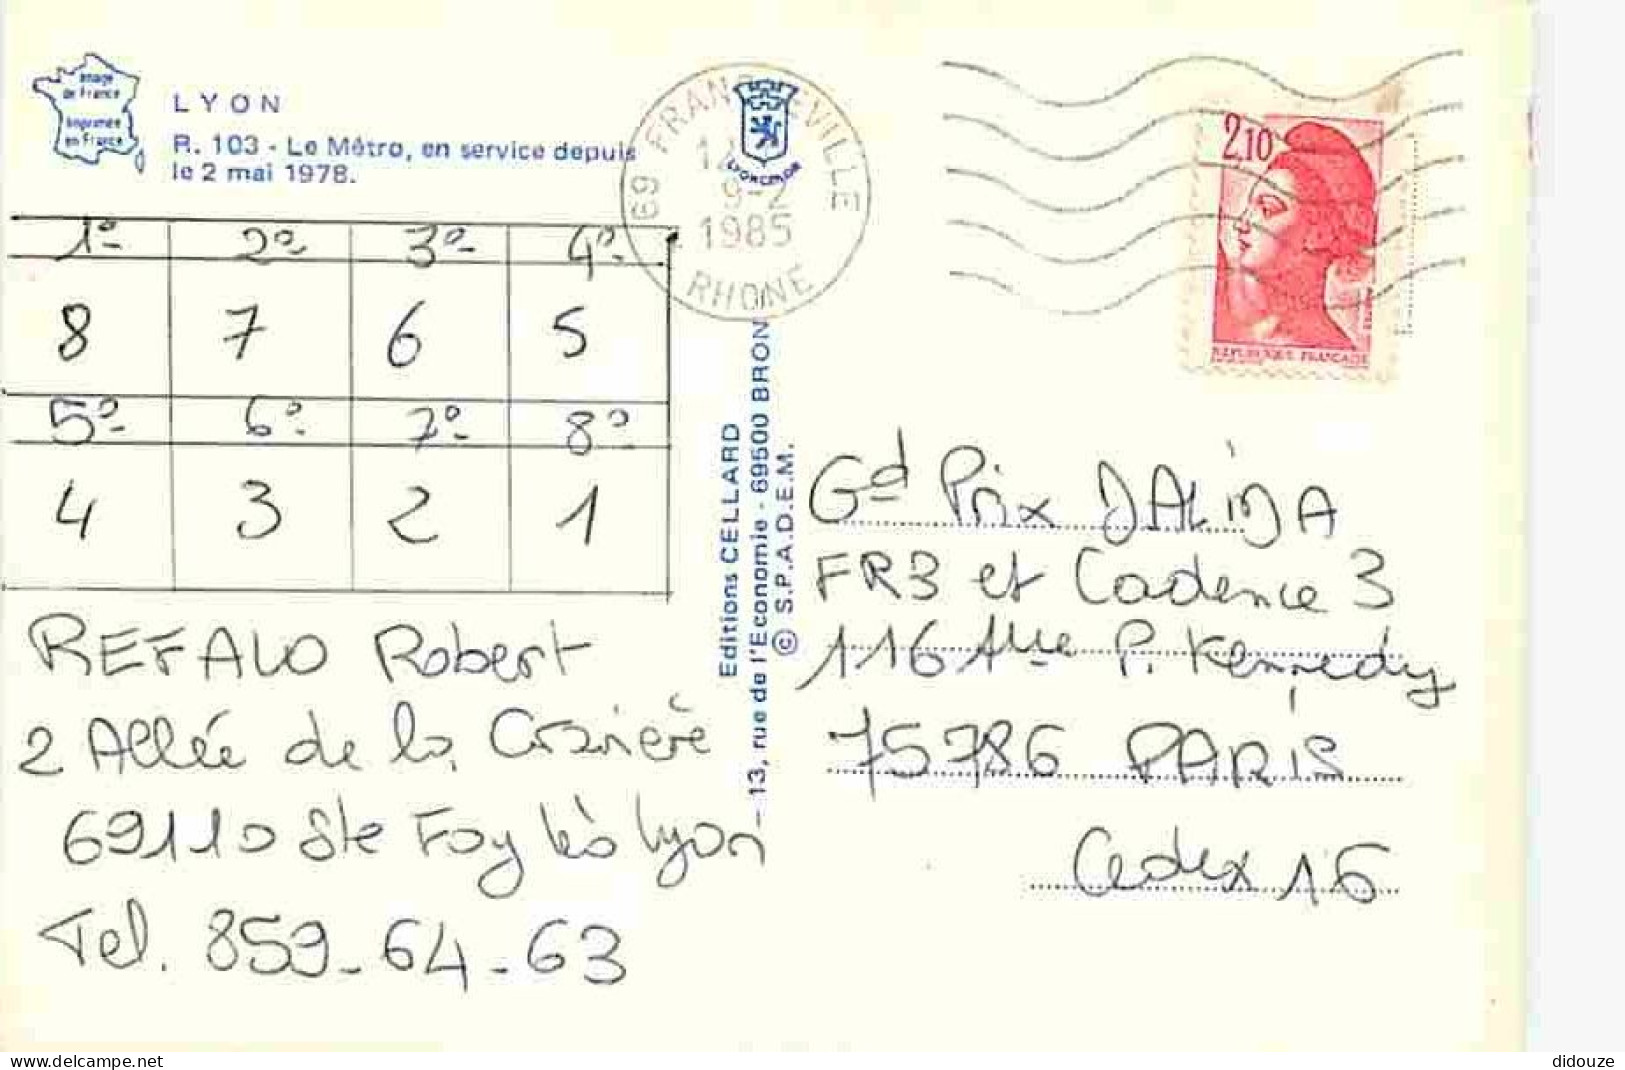 Image
de France
Imprimée
en France
LYON
R. 103 - Le Métro, en service depuis
le 2 mai 1978.
69 FRANCHEVILLE
9-2
1985
RHONE
LYONCOLOR
2,10
REPUBLIQUE FRANCAISE
1º 2º 3º 4º
8 7 6 5
5º 6º 7º 8º
4 3 2 1
REFALO Robert
2 Allée de la
69110 Ste Foy lès Lyon
Tel. 859-64-63
Editions CELLARD
13, rue de l'Economie - 69500 BRON
© S.P.A.D.E.M.
Gd Prix DALIDA
FR3 et Cadence 3
116 P. Kennedy
75786 PARIS
Cedex 16
didouze